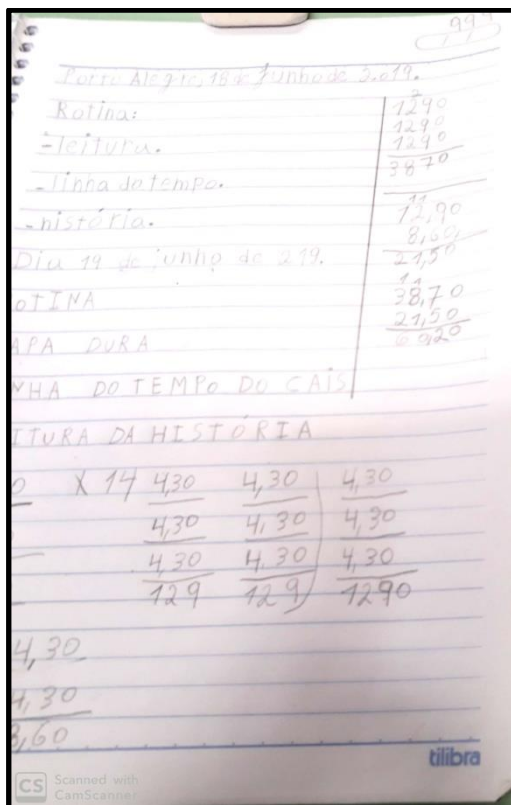 999
Porto Alegre, 18 de junho de 2.019.
Rotina:
-leitura.
-linha do tempo.
-história.
Dia 19 de junho de 219.
OTINA
APA DURA
NHA DO TEMPO DO CAIS
ITURA DA HISTÓRIA
2
1290
1290
1290
3870
11
12,90
8,60
21,50
11
38,70
21,50
60,20
0 X 14 4,30 4,30 4,30
4,30 4,30 4,30
4,30 4,30 4,30
129 129 1290
4,30
4,30
8,60
tilibra
CS Scanned with
CamScanner